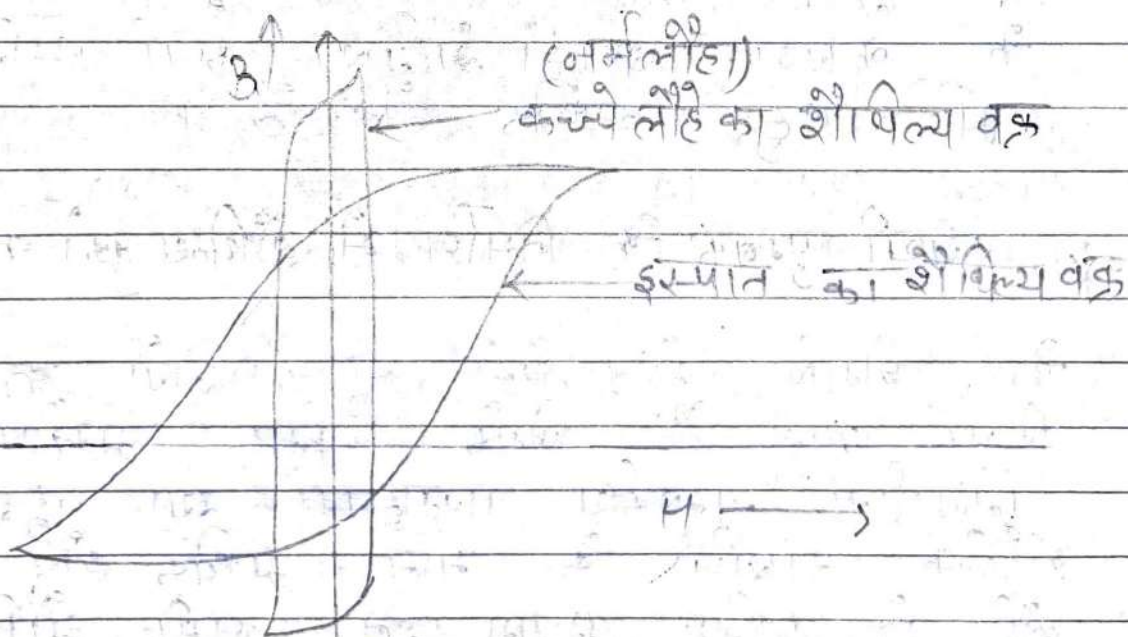 B
(नर्म लौहा)
कच्चे लौहे का शैथिल्य वक्र
इस्पात का शैथिल्य वक्र
H